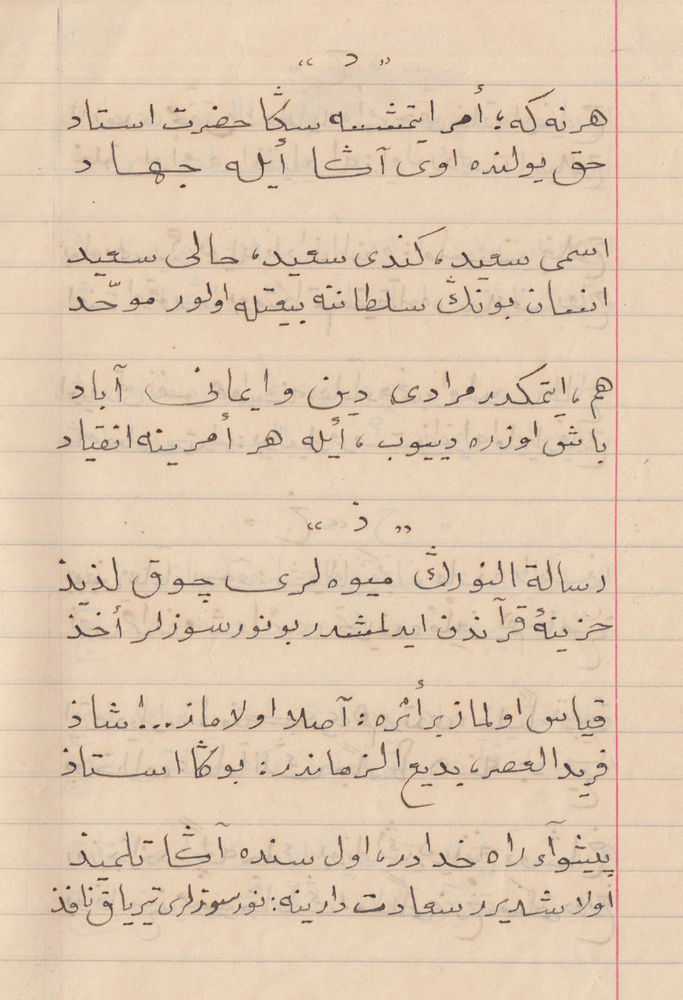 « د »
هر نه که ؛ أمر ایتمشسه سڭا حضرت استاد
حق یولنده اوی آڭا أیله جهاد
اسمی سعید، کندی سعید، حالی سعید
انسان بونڭ سلطانته بیعتله اولور موحّد
هم، ایتمکدر مرادی، دین و ایمانی آباد
باش اوزره دییوب، أیله هر أمرینه انقیاد
« ذ »
رسالة النورڭ میوه لری چوق لذیذ
خزینۀ قرآندن ایدلمشدر بو نور سوزلر أخذ
قیاس اولماز بر أثره : آصلا اولاماز...! شاذ
فرید العصر، بدیع الزماندر : بوڭا استاذ
پیشوآء راه خدادر، اول سنده آڭا تلمیذ
اولاشدیرر سعادت دارینه : نور سوزلری تیریاق نافذ